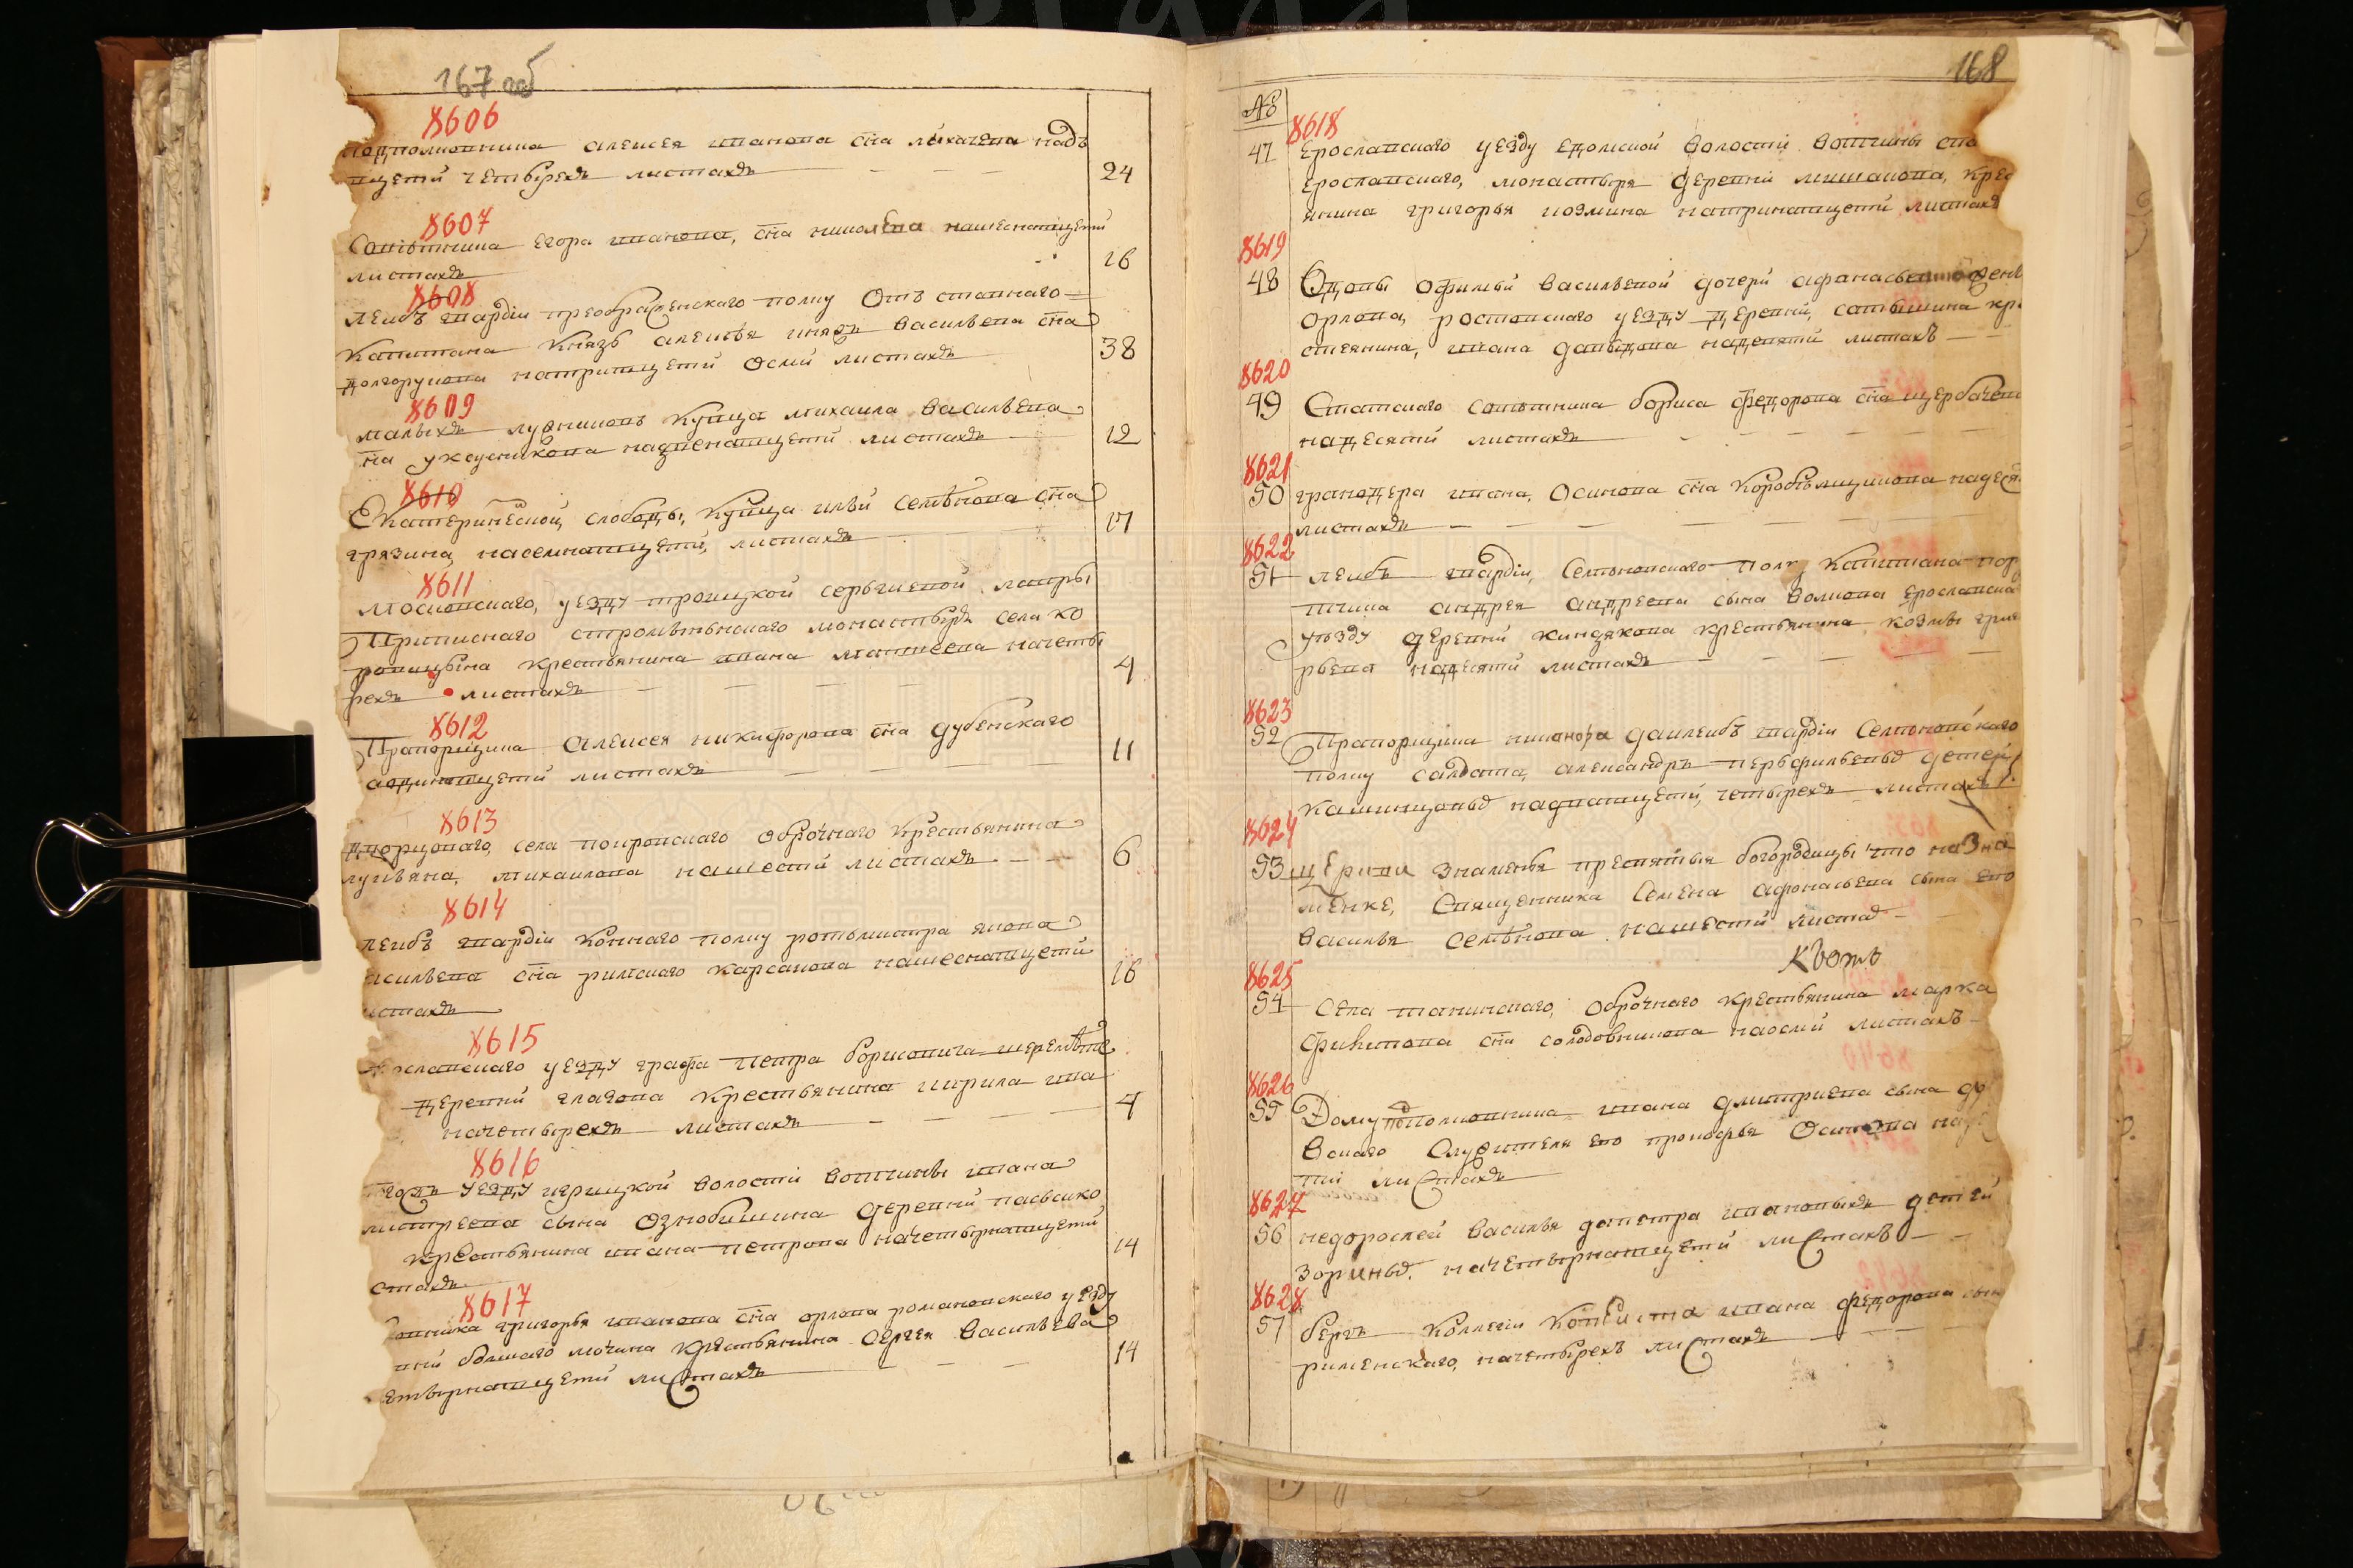 167 об
8606
подполковника алексея иванова сна лихачева надв
ццети четырехъ листахъ 24
8607
Советника егора иванова, сна николева нашеснатцети
листахъ 16
8608
леибъ гвардіи преображенскаго полку Отъ ставнаго
Капитана Князь алексѣя князь васильева сна
долгорукова натритцети Осми листахъ 38
8609
малыхъ лужниковъ купца михаила васильева
сна надвенатцети листахъ 12
8610
Екатерининской слободы, купца ильи семѣнова сна
грязина, насемнатцети, листахъ 17
8611
московскаго, уезду троицкой сергиевой лавры
Приписнаго стромынскаго монастыря села ко
ровицына крестьянина ивана матвеева начеты
рехъ листахъ 4
8612
Прапорщика алексея никифорова сна дубенскаго
адинатцети листахъ 11
8613
дворцоваго, села покровскаго оброчнаго крестьянина
лукьяна, михаилова нашести листахъ 6
8614
леибъ гвардіи коннаго полку ротьмистра якова
асильева сна римскаго карсакова нашеснатцети
истахъ 16
8615
рославскаго уезду графа петра борисовича шереметева
деревни глагова крестьянина кирила ива
начетырехъ листахъ 4
8616
уезду волости вотчины ивана
митреева сына ознобишина деревни
крестьянина ивана петрова начетырнатцети
стахъ 14
8617
григорья иванова сна орлова романовскаго уезду
вни большаго мочина крестьянина сергея васильева
етырнатцети листахъ 14
168
№
8618
47 ерославскаго уезду едомской волости вотчины спа
ерославскаго, монастыря деревни мишакова, крес
янина григорья козмина натринатцети листахъ
8619
48 Вдовы офимьи васильевой дочери афанасьевской жены
орлова, ростовскаго уезду деревни, сотьмина кре
стеянина, ивана давыдова надевяти листахъ
8620
49 Статскаго советника бориса федорова сна щербачева
надесяти листахъ
8621
50 гранодера ивана, осипова сна надеся
листахъ
8622
51 леибъ гвардіи, семеновскаго полку капитана пор
тчика андрея андреева сына волкова ерославска
уѣзду деревни киндякова крестьянина козмы григ
рьева надесяти листахъ
8623
52 Прапорщика никанора далеибъ гвардіи семеновскаго
полку салдата, александръ перьфильевыхъ детей
кашинцовыхъ надватцети, четырехъ листахъ
8624
53 церкви знаменья пресвятыя богородицы что назна
менке, священника семена афонасьева сына ево
василья семѣнова нашести листахъ
К Вотъ
8625
54 села танинскаго, оброчнаго крестьянина марка
филитова сна солодовникова наосми листахъ
8626
55 Дому подполковника ивана дмитриева сына
вскаго служителя ево прокофья осипова на
ти листахъ
8627
56 недорослей василья дапетра ивановыхъ детей
зориныхъ. начетырнатцети листахъ
8628
57 бергъ коллегіи копеиста ивана федорова сын
рименскаго, начетырехъ листахъ